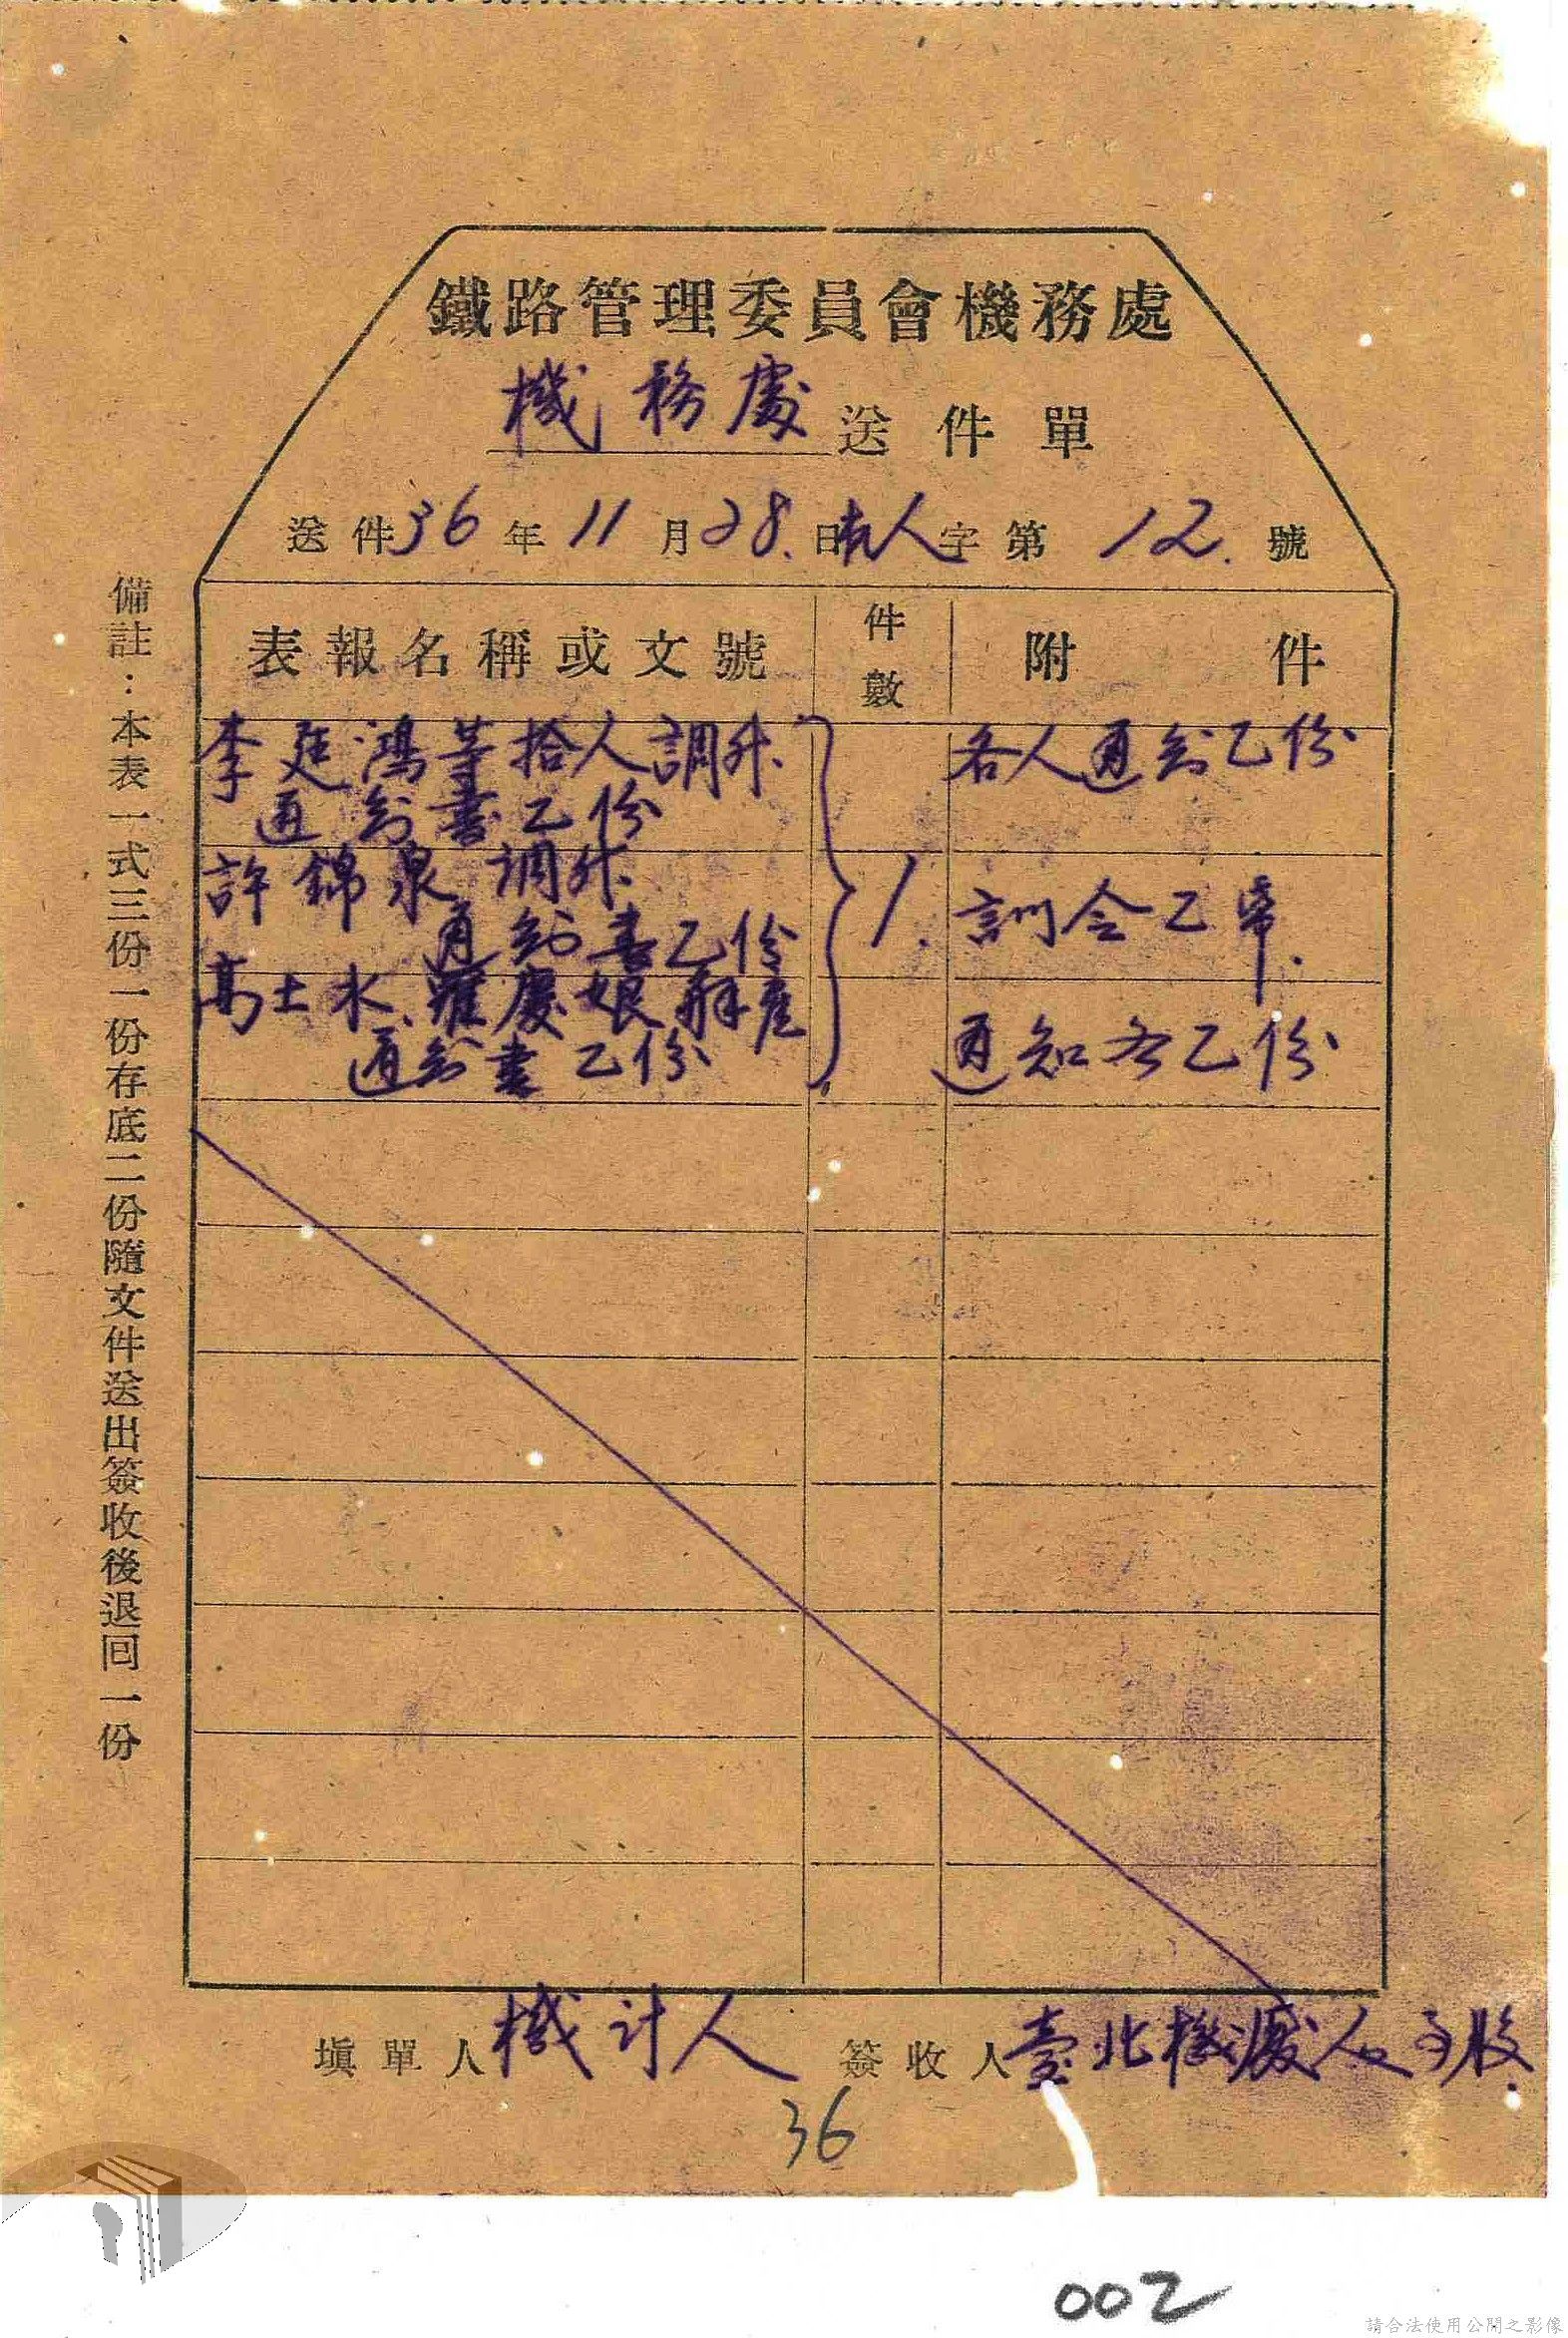 鐵路管理委員會機務處
機務處送件單
送件36年11月28.日人字第12.號
表報名稱或文號 件數 附件
李廷鴻等拾人調升
通知書乙份
許錦泉調升
通知書乙份
高士水、羅慶娘辭
通知書乙份
1.
各人通知乙份
訓令乙帋.
通知各乙份
填單人機計人 簽收人臺北機
36
備註：本表一式三份一份存底二份隨文件送出簽收後退回一份
002
請合法使用公開之影像